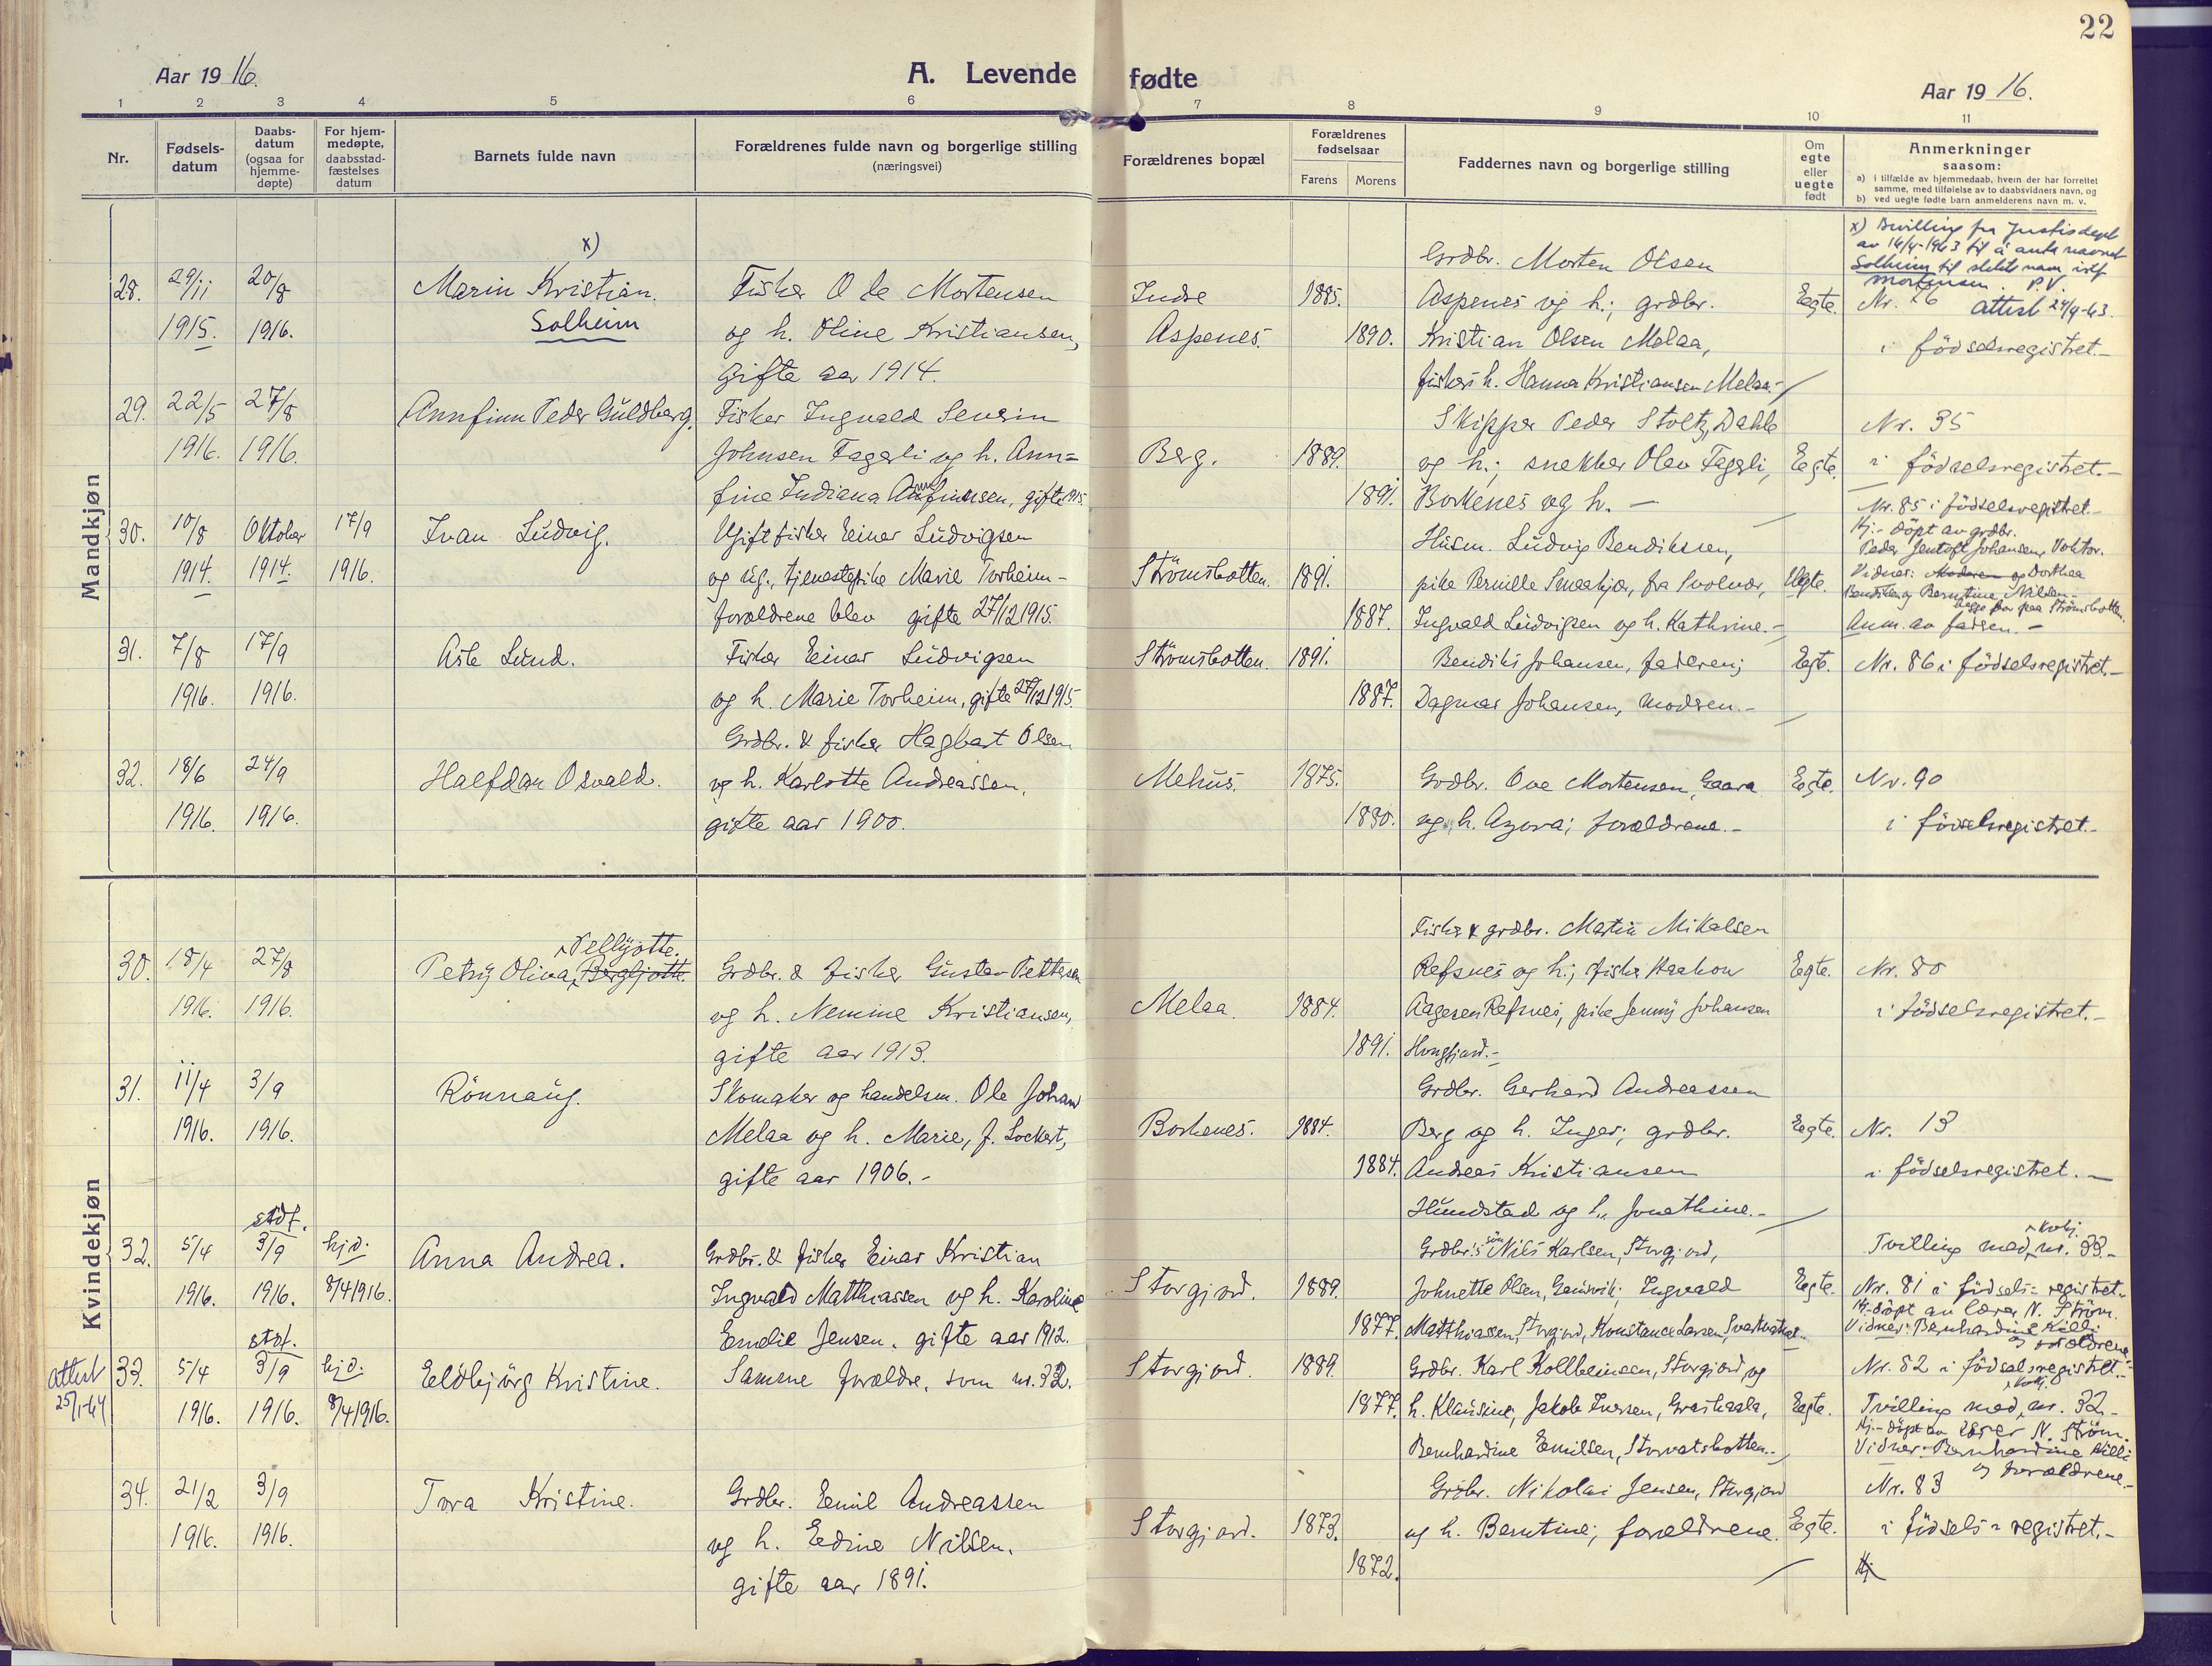 22
Aar 1916.
A. Levende fødte
Aar 1916.
1 2 3 4 5 6 7 8 9 10 11
Nr.
Fødselsdatum
Daabsdatum (ogsaa for hjemmedøpte)
For hjemmedøpte, daabsstadfæstelses datum
Barnets fulde navn
Forældrenes fulde navn og borgerlige stilling (næringsvei)
Forældrenes bopæl
Forældrenes fødselsaar
Farens Morens
Faddernes navn og borgerlige stilling
Om egte eller uegte født
Anmerkninger saasom:
a) i tilfælde av hjemmedaab, hvem der har forrettet samme, med tilføielse av to daabsvidners navn, og
b) ved uegte fødte barn anmelderens navn m. v.
Mandkjøn
28. 29/11 1915. 20/8 1916.
x)
Marin Kristian.
Solheim
Fisker Ole Mortensen
og h. Oline Kristiansen,
gifte aar 1914.
Indre
Aspenes.
1885.
1890.
Grdbr. Morten Olsen
Aspenes og h.; grdbr.
Kristian Olsen Melaa,
fiskers h. Hanna Kristiansen Melaa.-
Egte.
x) Bevilling fra Justisdept
av 16/4-1963 til å anta navnet
Solheim til slektsnavn istf
Mortensen. P.V.
Nr. 76 Attest 24/9-63.
i födselsregistret.-
29. 22/5 1916. 27/8 1916.
Annfinn Peder Guldberg.
Fisker Ingvald Severin
Johnsen Fagerli og h. Ann=
fine Indiana Annfinnsen, gifte 1915.
Berg.
1889.
1891.
Skipper Peder Stoltz Dahle
og h.; snekker Olav Fagerli,
Borkenes og h. -
Egte.
Nr. 35
i födselsregistret.-
30. 10/8 1914. Oktober 1914. 17/9 1916.
Ivan Ludvig.
Ugift fisker Einar Ludvigsen
og ug., tjenestepike Marie Torheim-
forældrene blev gifte 27/12 1915.
Strömsbotten.
1891.
1887.
Husm. Ludvig Bendiksen,
pike Pernille Smeekjær, fra Svolvær,
Ingvald Ludvigsen og h. Kathrine.-
Uegte.
Nr. 85 i födselsregistret.-
Hj.- döpt av grdbr.
Peder Jentoft Johansen,
Vidner: Moderen og Dorthea
Bendiksen og Berntine Nilsen-
begge bor paa Strömsbotten.
Anm. av faren.-
31. 7/8 1916. 17/9 1916.
Asle Lund.
Fisker Einar Ludvigsen
og h. Marie Torheim, gifte 27/12 1915.
Strömsbotten.
1891.
1887.
Bendiks Johansen, faderen;
Dagmar Johansen, modren.-
Egte.
Nr. 86 i födselsregistret.-
32. 18/6 1916. 24/9 1916.
Halfdan Osvald.
Grdbr. & fisker Hagbart Olsen
og h. Karlotte Andreassen,
gifte aar 1900.
Mehus.
1875.
1880.
Grdbr. Ove Mortensen, Gaara
og h. Azora; forældrene.-
Egte.
Nr. 90
i födselsregistret.-
Kvindekjøn
30. 18/4 1916. 27/8 1916.
Pellyotte.
Petry Oliva, Bergljotte.
Grdbr. & fisker Gustav Pettersen
og h. Nemine Kristiansen,
gifte aar 1913.
Melaa.
1884.
1891.
Fisker & grdbr. Martin Mikalsen
Refsnes og h.; fisker Haakon
Aagesen Refsnes, pike Jenny Johansen
Egte.
Nr. 80
i födselsregistret.-
31. 11/4 1916. 3/9 1916.
Rönnaug.
Skomaker og handelsm. Ole Johan
Melaa og h. Marie, f. Lockert,
gifte aar 1906.-
Borkenes.
1884.
1884.
Grdbr. Gerhard Andreassen
Berg og h. Inger; grdbr.
Andreas Kristiansen
Hundstad og h. Jonethine.-
Egte.
Nr. 13
i födselsregistret.-
32. 5/4 1916. stdf. 3/9 1916. hjd. 8/4 1916.
Anna Andrea.
Grdbr. & fisker Einar Kristian
Ingvald Matthiassen og h. Karoline
Emelie Jensen, gifte aar 1912.
Storgjord.
1889.
1877.
Grdbr.s sön Nils Karlsen, Storgjord,
Johnette Olsen, Ingvald
Matthiassen, Storgjord, Konstance Larsen,
Egte.
Tvilling med kvkj. nr. 33.-
Nr. 81 i födsels-registret.-
Hj.-döpt av lærer N. Ström.
Vidner: Bernhardine Killi
og forældrene.
Attest
25/1-64
33. 5/4 1916. stdf. 3/9 1916. hjd. 8/4 1916.
Eldbjörg Kristine.
Samme forældre, som nr. 32.
Storgjord.
1889.
1877.
Grdbr. Karl Kollbeinsen, Storgjord, og
h. Klausine, Jakob Iversen,
Bernhardine Emilsen, Storvatsbotten.-
Egte.
Nr. 82 i födselsregistret.-
Tvilling med kvkj. nr. 32-
Hj.-döpt av lærer N. Ström.
Vidner: Bernhardine Killi
og forældrene.-
34. 21/2 1916. 3/9 1916.
Tora Kristine.
Grdbr. Emil Andreassen
og h. Edine Nilsen,
gifte aar 1891.
Storgjord.
1873.
1872.
Grdbr. Nikolai Jensen, Storgjord
og h. Berntine; forældrene.
Egte.
Nr. 83
i födsels-registret.-
Hj